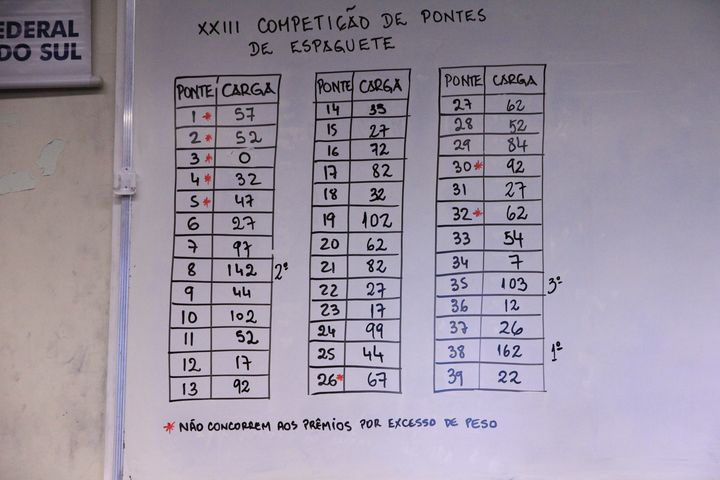 EDERAL
DO SUL
XXIII COMPETIÇÃO DE PONTES
DE ESPAGUETE
PONTE CARGA
1 * 57
2 * 52
3 * 0
4 * 32
5 * 47
6 27
7 97
8 142 2º
9 44
10 102
11 52
12 17
13 92
PONTE CARGA
14 33
15 27
16 72
17 82
18 32
19 102
20 62
21 82
22 27
23 17
24 99
25 44
26 * 67
PONTE CARGA
27 62
28 52
29 84
30 * 92
31 27
32 * 62
33 54
34 7
35 103 3º
36 12
37 26
38 162 1º
39 22
* NÃO CONCORREM AOS PRÊMIOS POR EXCESSO DE PESO